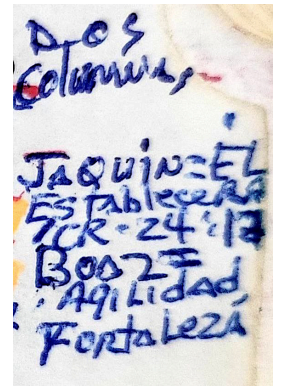 DOS
Columnas,
JAQUIN=EL
ESTAblECERA
7CR-24:12
BOOZ=
AGILIdAd,
FORTALEZA